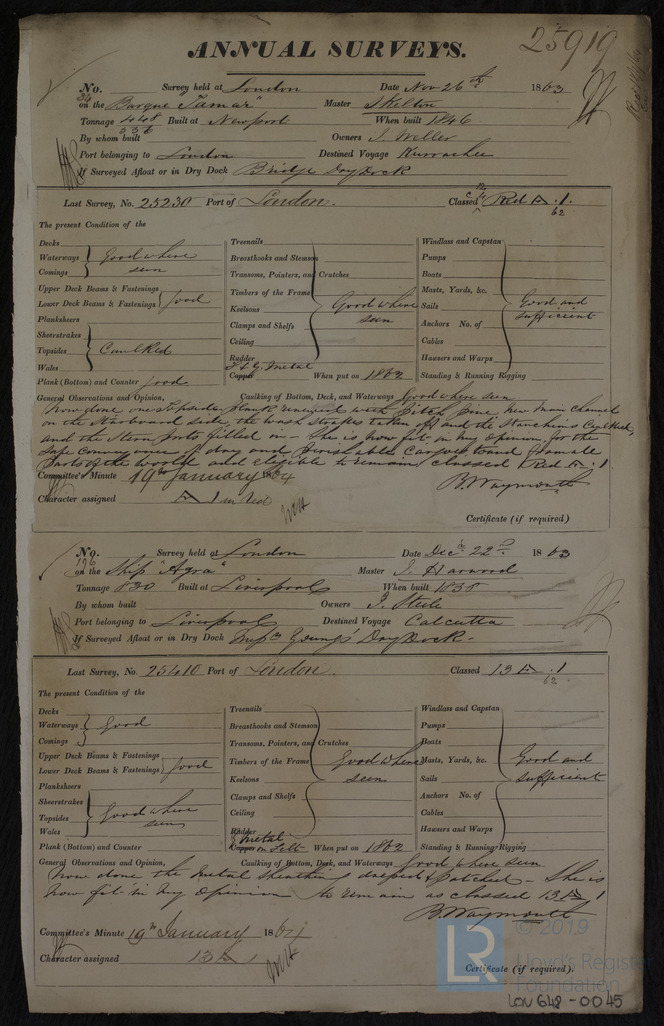 25919
ANNUAL SURVEYS.
No. 34 Survey held at London Date Nov 26th 1863
on the Barque "Tamar" Master Skelton
Tonnage 448 536 Built at Newport When built 1846
By whom built Owners J. Weller
Port belonging to London Destined Voyage Kurrachee
If Surveyed Afloat or in Dry Dock Bridge Dry Dock
Last Survey, No. 25230 Port of London. Classed Red A.1 62
The present Condition of the
Decks
Waterways Good where seen
Comings
Upper Deck Beams & Fastenings
Lower Deck Beams & Fastenings good
Planksheers
Sheerstrakes
Topsides Caulked
Wales
Plank (Bottom) and Counter good
Treenails
Breasthooks and Stemson
Transoms, Pointers, and Crutches
Timbers of the Frame
Keelsons Good where seen
Clamps and Shelfs
Ceiling
Rudder
Copper Metal When put on 1862
Windlass and Capstan
Pumps
Boats
Masts, Yards, &c.
Sails Good and sufficient
Anchors No. of
Cables
Hawsers and Warps
Standing & Running Rigging
General Observations and Opinion, Caulking of Bottom, Deck, and Waterways Good where seen
Now done one topside plank renewed with Pitch Pine, new main channel
on the Starboard side, the wash strakes taken off and the Stanchions Caulked,
and the Stern ports filled in. She is now fit in my Opinion for the
safe conveyance of dry and perishable cargoes to and from all
parts of the world and eligible to remain classed Red A.1.
Committee's Minute 19th January 1864 B. Waymouth
Character assigned A 1 in Red
Certificate (if required)
No. 196 Survey held at London Date Decr 22d 1863
on the Ship "Agra" Master J. Harwood
Tonnage 830 Built at Liverpool When built 1858
By whom built Owners J. Steele
Port belonging to Liverpool Destined Voyage Calcutta
If Surveyed Afloat or in Dry Dock Messrs Youngs' Dry Dock
Last Survey, No. 25410 Port of London. Classed 13 A.1 62
The present Condition of the
Decks
Waterways Good
Comings
Upper Deck Beams & Fastenings
Lower Deck Beams & Fastenings good
Planksheers
Sheerstrakes
Topsides Good where seen
Wales
Plank (Bottom) and Counter
Treenails
Breasthooks and Stemson
Transoms, Pointers, and Crutches
Timbers of the Frame Good where
Keelsons seen
Clamps and Shelfs
Ceiling
Rudder
Copper Metal on Felt When put on 1862
Windlass and Capstan
Pumps
Boats
Masts, Yards, &c. Good and
Sails sufficient
Anchors No. of
Cables
Hawsers and Warps
Standing & Running Rigging
General Observations and Opinion, Caulking of Bottom, Deck, and Waterways Good where seen
Now done the metal sheathing & patched - She is
now fit in my Opinion to remain as classed 13 A 1
B. Waymouth
Committee's Minute 19th January 1864
Character assigned 13 A 1
Certificate (if required).
LR
© 2019
Lloyd's Register
Foundation
LON 648-0045